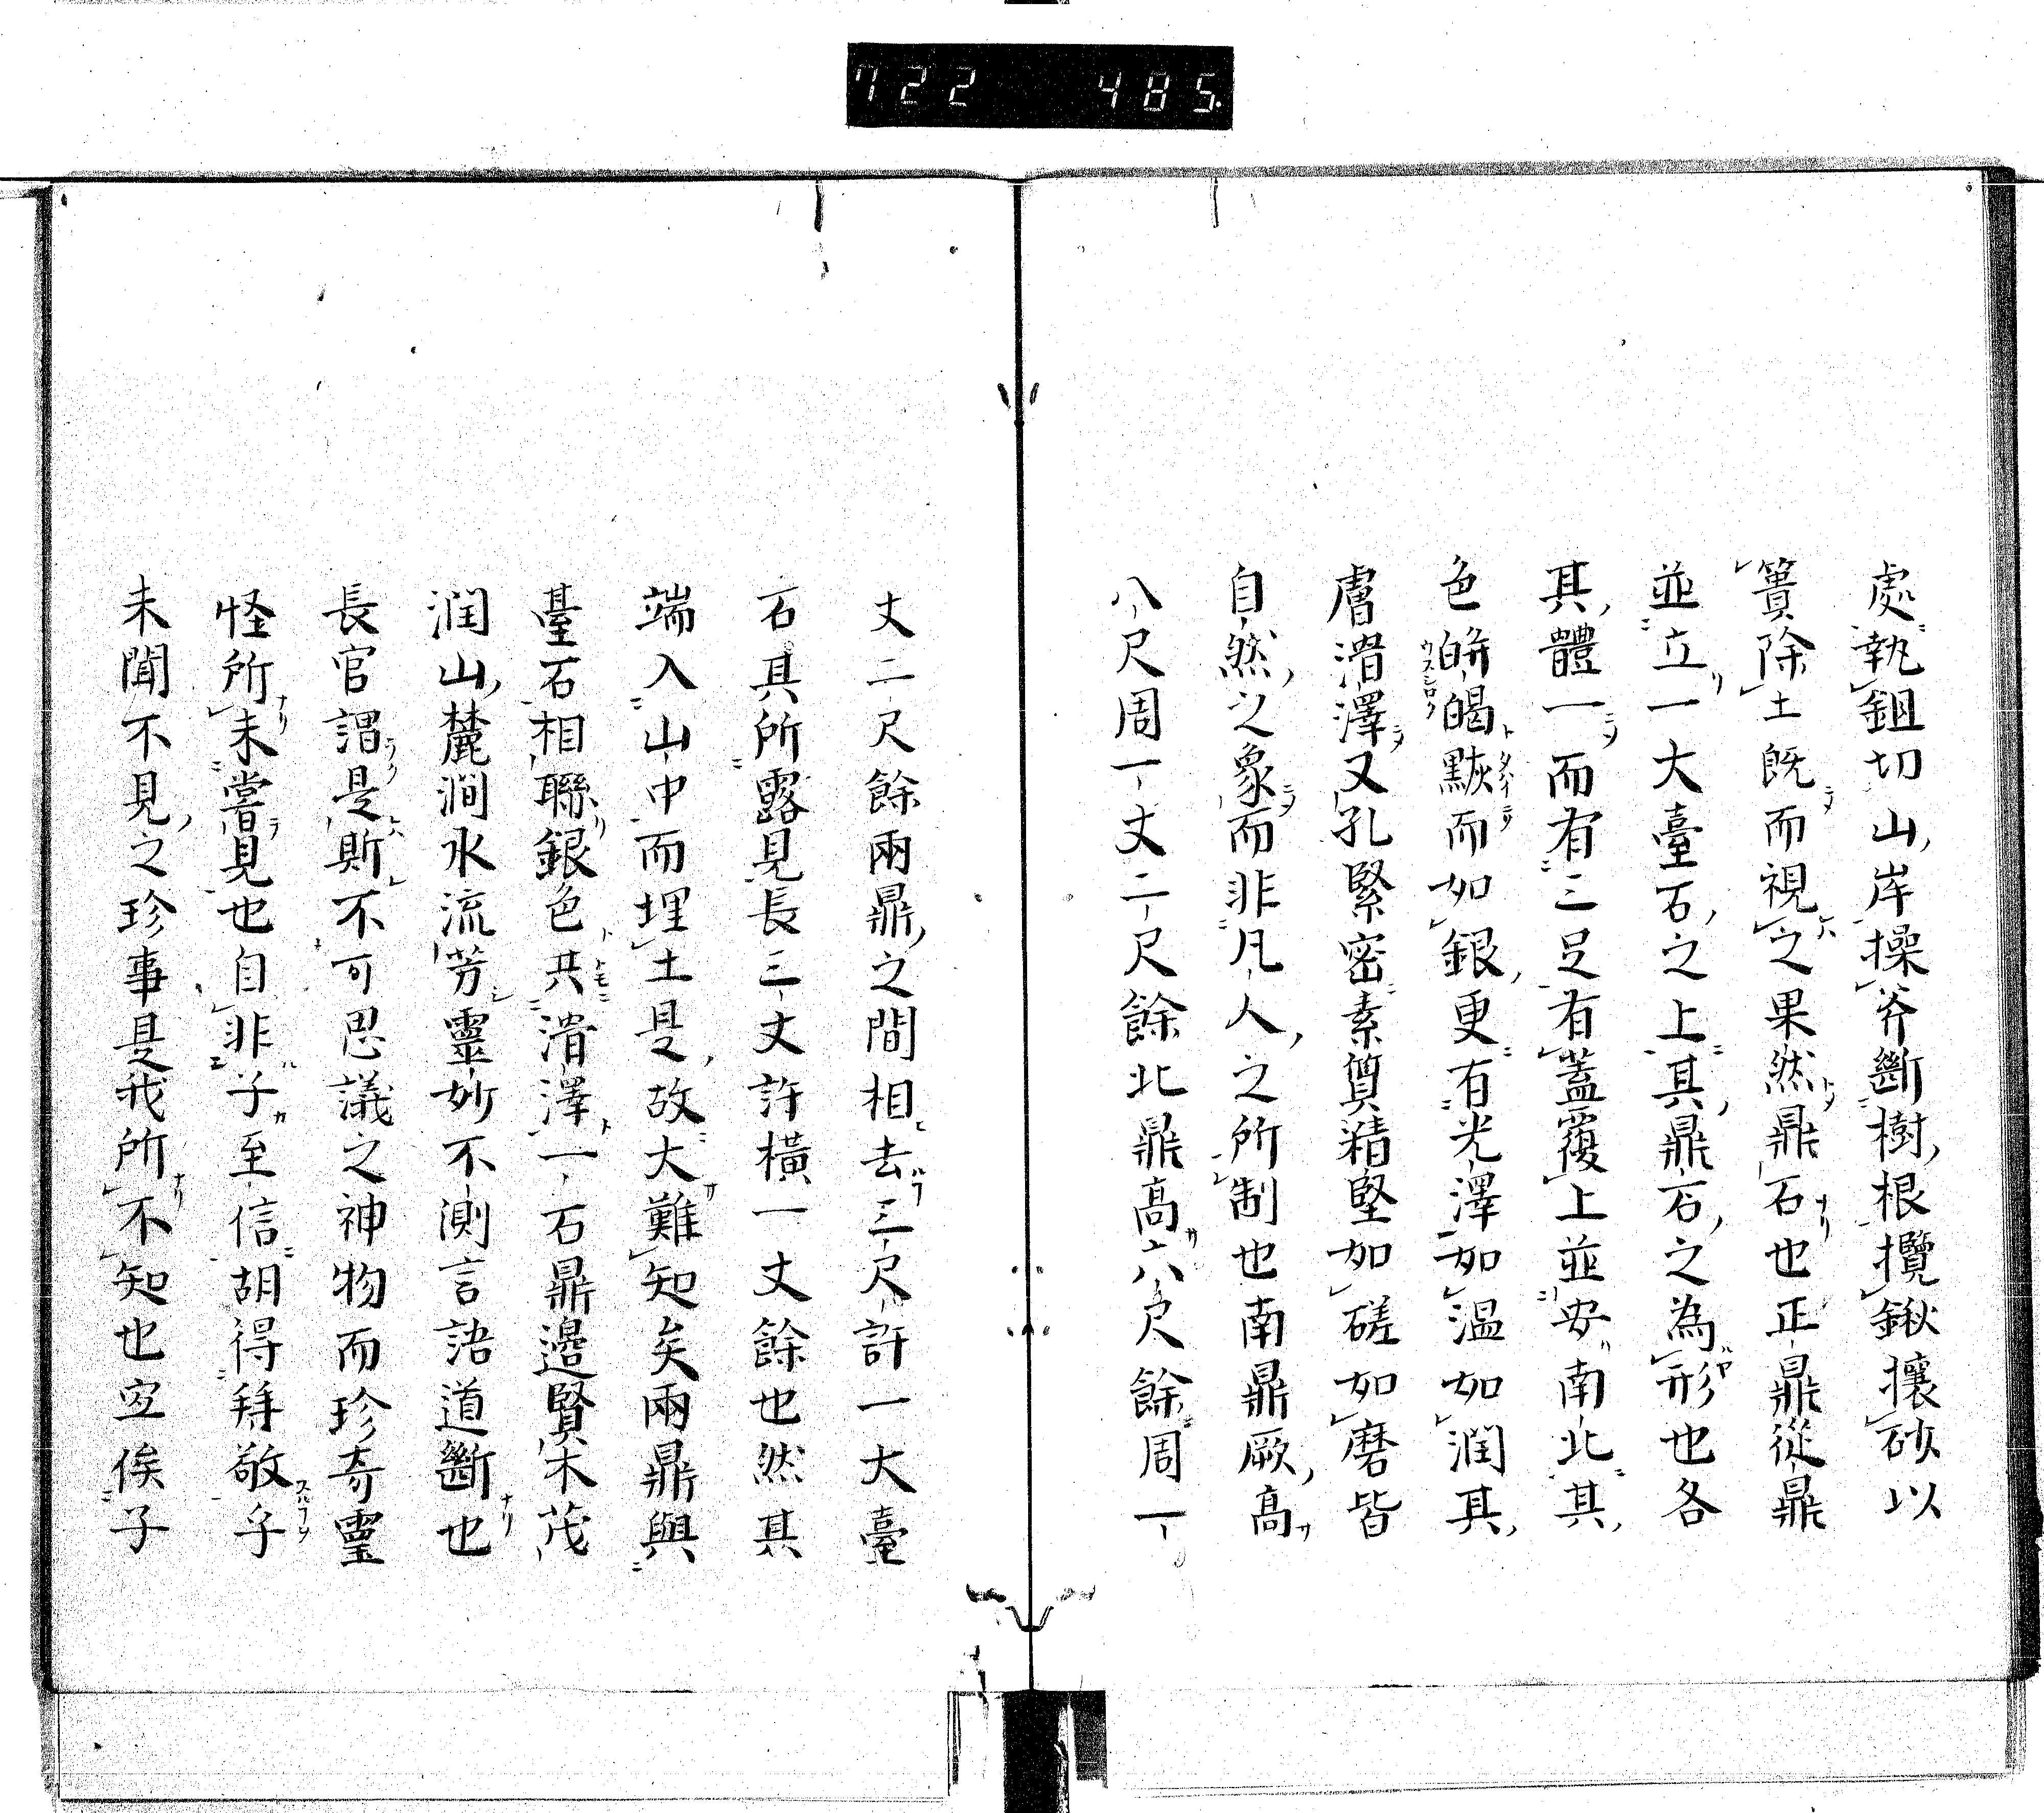 722 485.
處執鉏切山岸操斧斷樹根攬鍬攘砂以
簣除土既而視之果然鼎石也正鼎從鼎
並立一大臺石之上其鼎石之為形也各
其體一而有三足有蓋覆上並安南北其
色皏暍黬而如銀更有光澤如溫如潤其
膚滑澤又孔緊密素質精堅如磋如磨皆
自然之象而非凡人之所制也南鼎厥高
八尺周一丈二尺餘北鼎高六尺餘周一
丈二尺餘兩鼎之間相去三尺許一大臺
石其所露見長三丈許橫一丈餘也然其
端入山中而埋土是故大難知矣兩鼎與
臺石相聯銀色共滑澤一石鼎邊賢木茂
潤山麓澗水流芳靈妙不測言語道斷也
長官謂是斯不可思議之神物而珍奇靈
怪所未嘗見也自非子至信胡得拜敬乎
未聞不見之珍事是我所不知也宜俟子